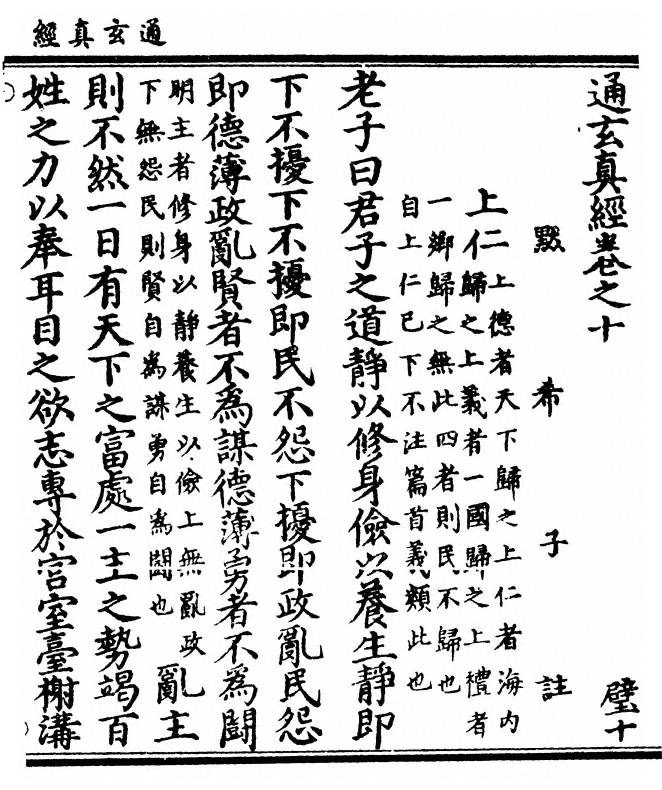 通玄真經
通玄真經卷之十　璧十
默希子註
上仁
上德者天下歸之上仁者海内
歸之上義者一國歸之上禮者
一鄉歸之無此四者則民不歸也
自上仁已下不注篇首義類此也
老子曰君子之道靜以修身儉以養生靜即
下不擾下不擾即民不怨下擾即政亂民怨
即德薄政亂賢者不為謀德薄勇者不為鬭
明主者修身以靜養生以儉上無亂政
下無怨民則賢自為謀勇自為鬭也
亂主
則不然一日有天下之富處一主之勢竭百
姓之力以奉耳目之欲志專於宮室臺榭溝